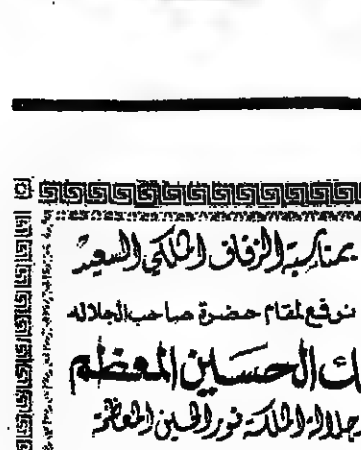 بمناسبة الزفاف الملكي السعيد
نرفع لمقام حضرة صاحب الجلاله
الحسين المعظم
جلالة الملكة نور الحسين المعظمة